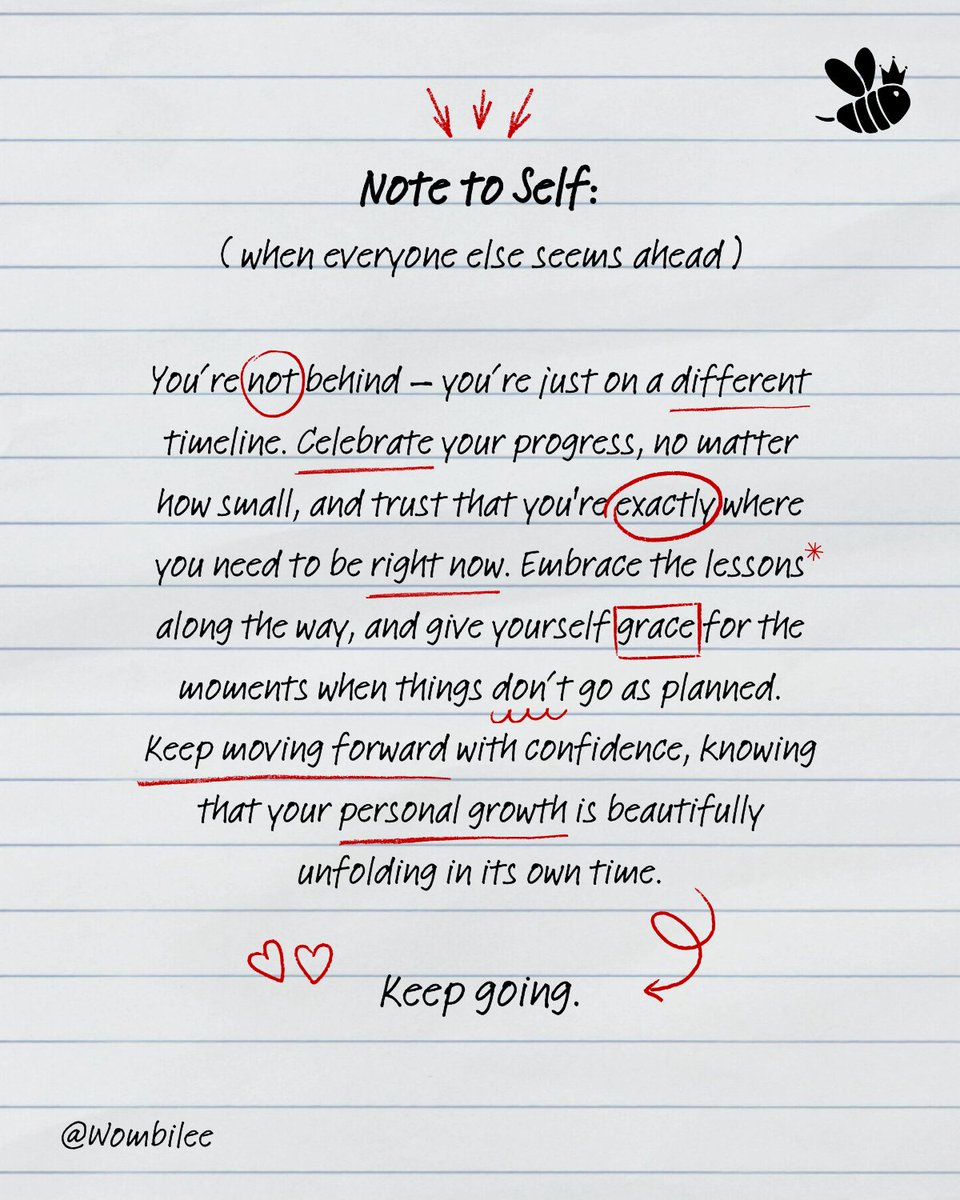 Note to Self:
( when everyone else seems ahead )
You're not behind – you're just on a different
timeline. Celebrate your progress, no matter
how small, and trust that you're exactly where
you need to be right now. Embrace the lessons*
along the way, and give yourself grace for the
moments when things don't go as planned.
Keep moving forward with confidence, knowing
that your personal growth is beautifully
unfolding in its own time.
Keep going.
@Wombilee